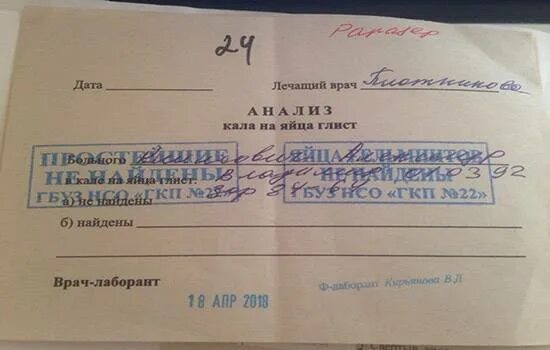 24
Дата Лечащий врач Плотникова
АНАЛИЗ
кала на яйца глист
Больного
в кале на яйца глист.
а) не найдены
ПРОСТЕЙШИЕ
НЕ НАЙДЕНЫ
ГБУЗ НСО «ГКП №22»
ЯЙЦА ГЕЛЬМИНТОВ
НЕ НАЙДЕНЫ
ГБУЗ НСО «ГКП №22»
б) найдены
Врач-лаборант
18 АПР 2018
Ф-лаборант Кирьянова В.Л